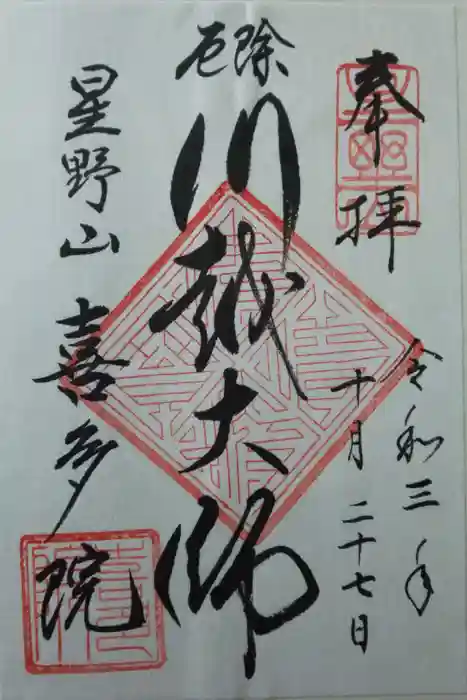 奉拝
令和三年
十月二十七日
厄除
川越大師
星野山
喜多院